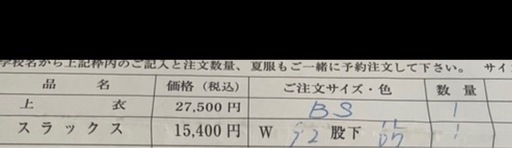 学校名から上記枠内のご記入と注文数量、夏服もご一緒に予約注文して下さい。 サイ
品 名 価格（税込） ご注文サイズ・色 数 量
上 衣 27,500 円 BS 1
スラックス 15,400 円 W 92 股下 1